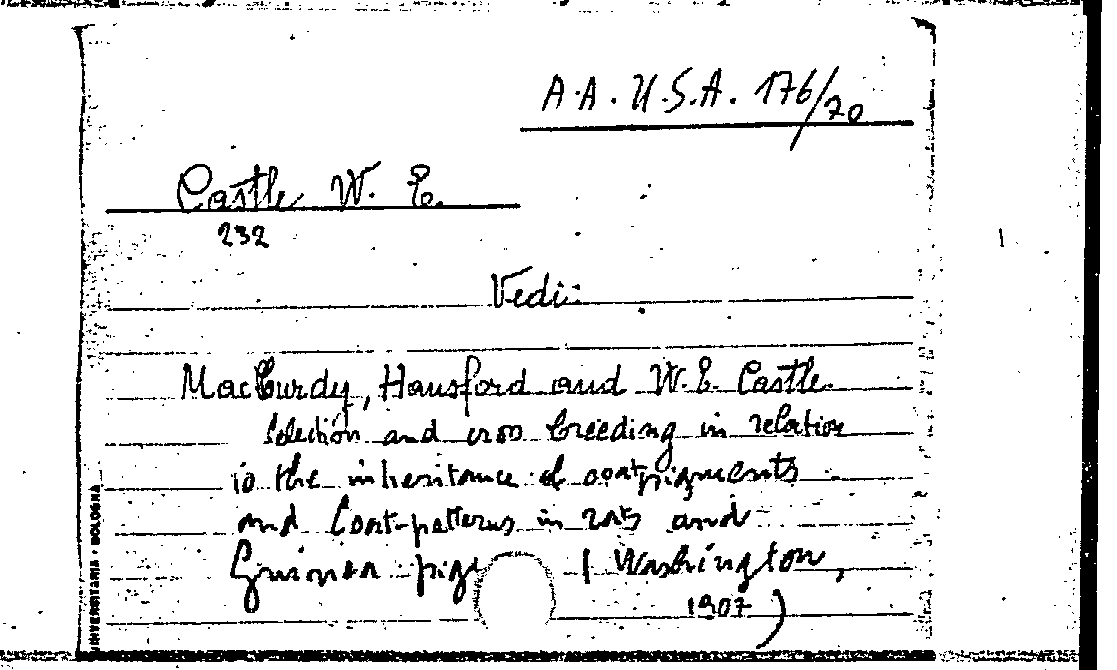 A.A. U.S.A. 176/70
Castle W. E.
232
Vedi:
MacCurdy, Hansford and W.E. Castle
Selection and cross breeding in relation
to the inheritance of coat pigments
and Coat-patterns in rats and
Guinea pigs (Washington,
1907)
UNIVERSITARIA - BOLOGNA